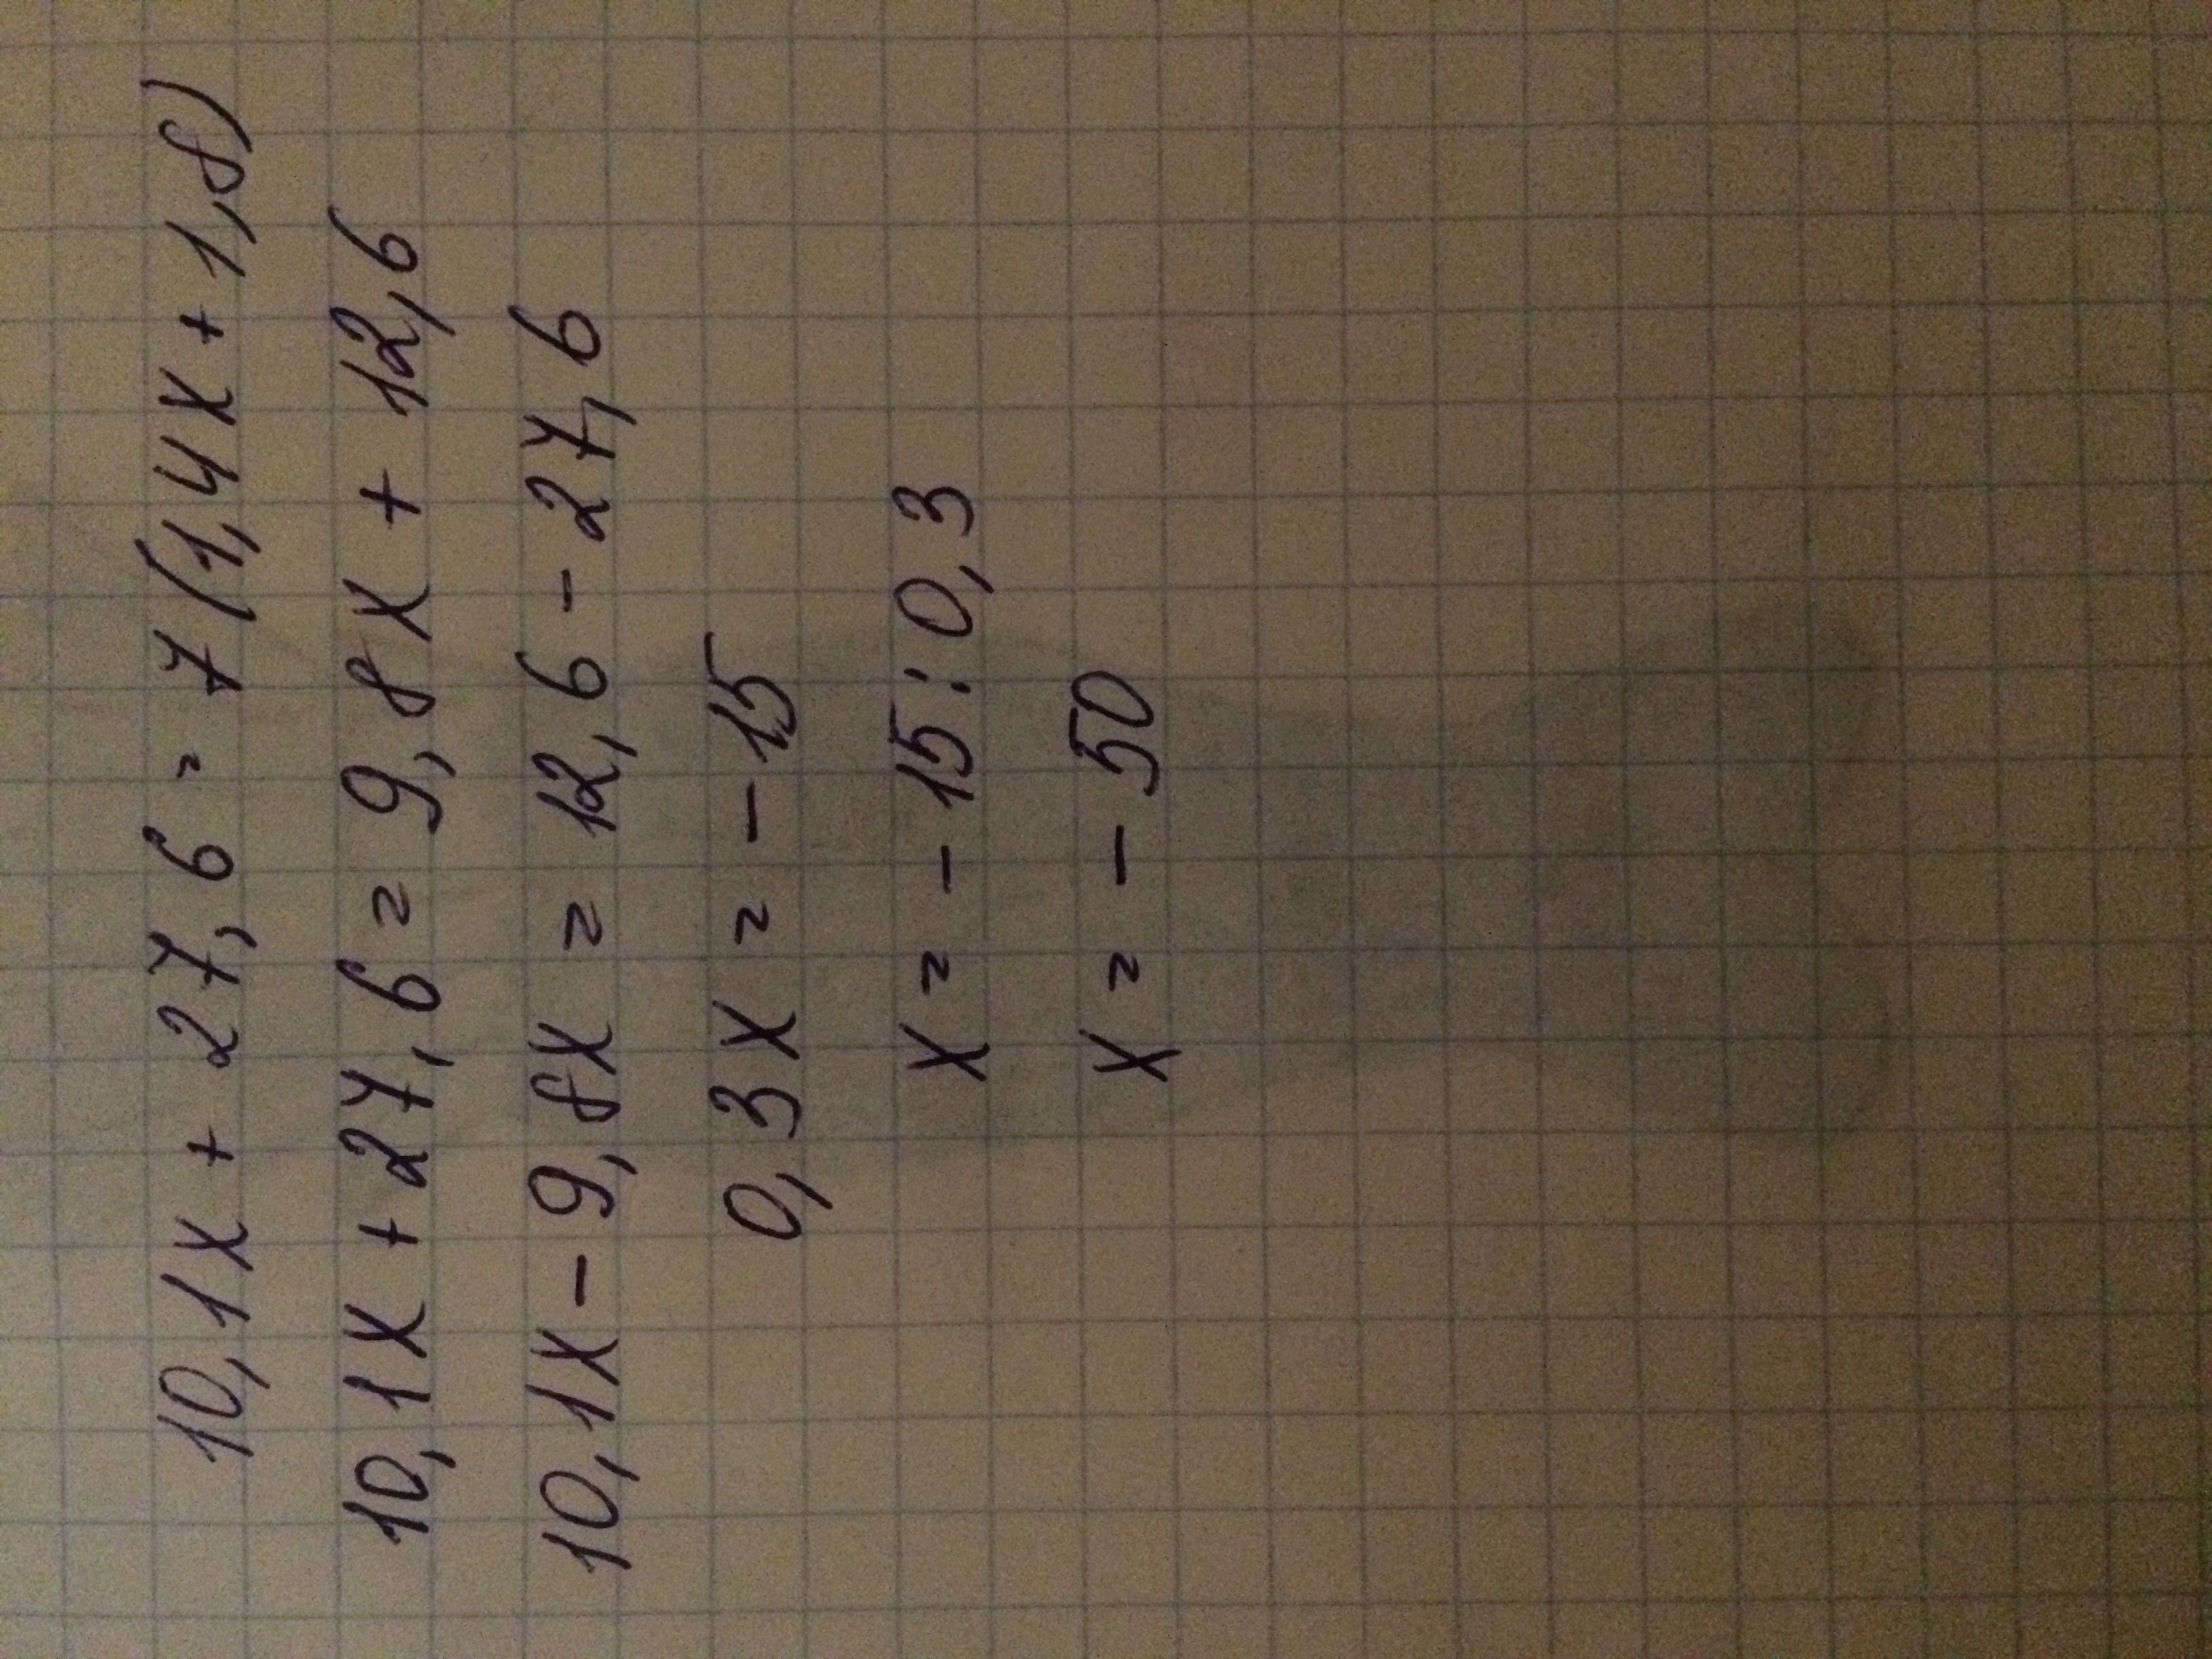 10,1x + 27,6 = 7(1,4x + 1,8)
10,1x + 27,6 = 9,8x + 12,6
10,1x - 9,8x = 12,6 - 27,6
0,3x = -15
x = -15:0,3
x = -50